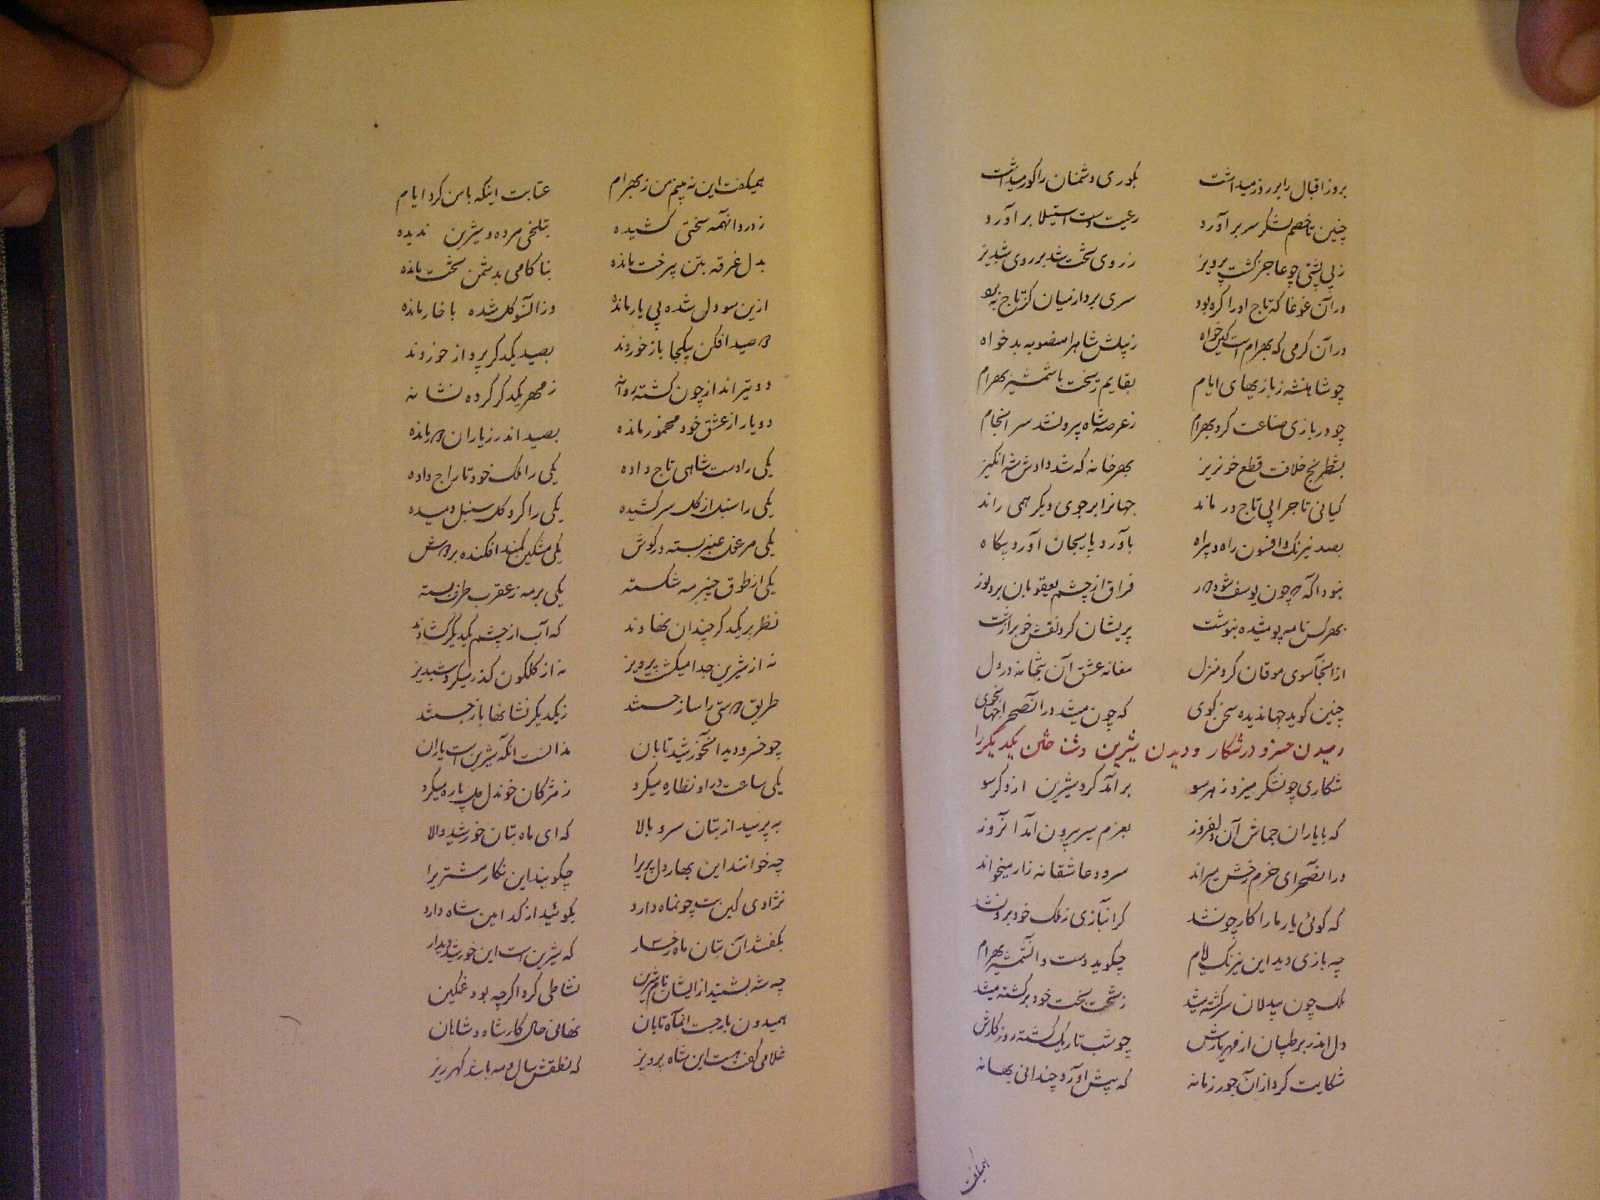 بروز اقبال را بر روز میداشت بکوری دشمنان را کور میداشت
چنین تا خصم لشکر سر بر آورد رعیت دست استیلا بر آورد
ز بی پشتی چو عاجز گشت پرویز ز روی تخت شد بر روی شبدیز
در آن غوغا که تاج او را گره بود سری برد از میان کز تاج به بود
در آن گرمی که بهرام است کین خواه ز پیلش شاهرا منصوبه بدخواه
چو شاهنشه ز بازیهای ایام بقایم ریخت با شمشیر بهرام
چو در بازی صناعت کرد بهرام ز عرصه شاه بیرون شد سر انجام
بشطرنج خلافت قطع خونریز بهر خانه که شد دادش شه انگیز
کیانی تاج را بی تاج در ماند جهانرا بر جوی دیگر همی راند
بصد نیرنگ و افسون راه و بیراه بآوردبایجان آورد بنگاه
فراق از چشم یعقوبان بردوز
بهر کس نامه پوشیده بنوشت پریشان کرد نقش خوب را زشت
از انجا سوی موقان کرد منزل مغانه عشق آن بتخانه در دل
چنین گوید جهاندیده سخن گوی که چون میشد در آن صحرا جهانجوی
رسیدن خسرو در شکار و دیدن شیرین و شناختن یکدیگر را
شکاری چون شکر میزد ز هر سو بر آمد گرد شیرین از دگر سو
که با یاران جماش آن دلفروز بعزم سیر بیرون آمد آنروز
در آن صحرای خرم رخش میراند سرود عاشقانه زار میخواند
که گوئی یار ما را کار چون شد کرانبازی ز ملک خود برون شد
چه بازی دید این نیرنگ ایام چگوید دست و آن شمشیر بهرام
ملک چون بیدلان سرگشته میشد ز تخت بخت خود برگشته میشد
دل اندر بر طپان از مهر یارش چو شب تاریک گشته روز کارش
شکایت کرد از آن جور زمانه که پیش آورد چندانی بهانه
همیگفت
همیگفت این نه بینم من ز بهرام عتابت اینکه با من کرد ایام
ز درد آنهمه سختی کشیده بتلخی مرده و شیرین ندیده
بدل غرقه بتن بیرخت مانده بناکامی بدشمن تخت مانده
ازین سو دل شده بی یار مانده وز آنسو گل شده با خار مانده
دو صید افکن بیکجا باز خوردند بصید یکدیگر پرواز خوردند
دو تیر انداز چون گشته روانه ز مهر یکدگر کرده نشانه
دو یار از عشق خود مخمور مانده بصید اندر ز یاران دور مانده
یکی را دست شاهی تاج داده یکی را ملک خود تاراج داده
یکی را سنبل از گل سر کشیده یکی را گرد گل سنبل دمیده
یکی مرغول عنبر بسته در گوش یکی مشکین کمند افکنده بر دوش
یکی از طوق چنبر مه شکسته یکی بر مه ز عقرب طرف بسته
نظر بر یکدگر چندان نهادند که آب از چشم یکدیگر گشادند
نه از شیرین جدا میگشت پرویز نه از گلگون گذر میکرد شبدیز
طریق دوستی را ساز جستند ز یکدیگر نشانها باز جستند
چو خسرو دید آنخورشید تابان
یکی ساعت در او نظاره میکرد ز مژگان خوندل میپاره میکرد
بپرسید از بتان سرو بالا که ای ماه بتان خورشید والا
چه خوانند این بهار دل پریرا چگویند این نگار مشتریرا
نژادی کین بت چو نماه دارد بگوئید از کدامین شاه دارد
بگفتند آن بتان ماه رخسار که شیرین است این خورشید دیدار
چه شه بشنید از ایشان نام شیرین نشاطی کرد اگرچه بود غمگین
همیدون باز جست آنماه تابان نهانی حال کار شاه و شاهان
غلامی گفت هست این شاه پرویز که نطقش سال و مه باشد گهر ریز